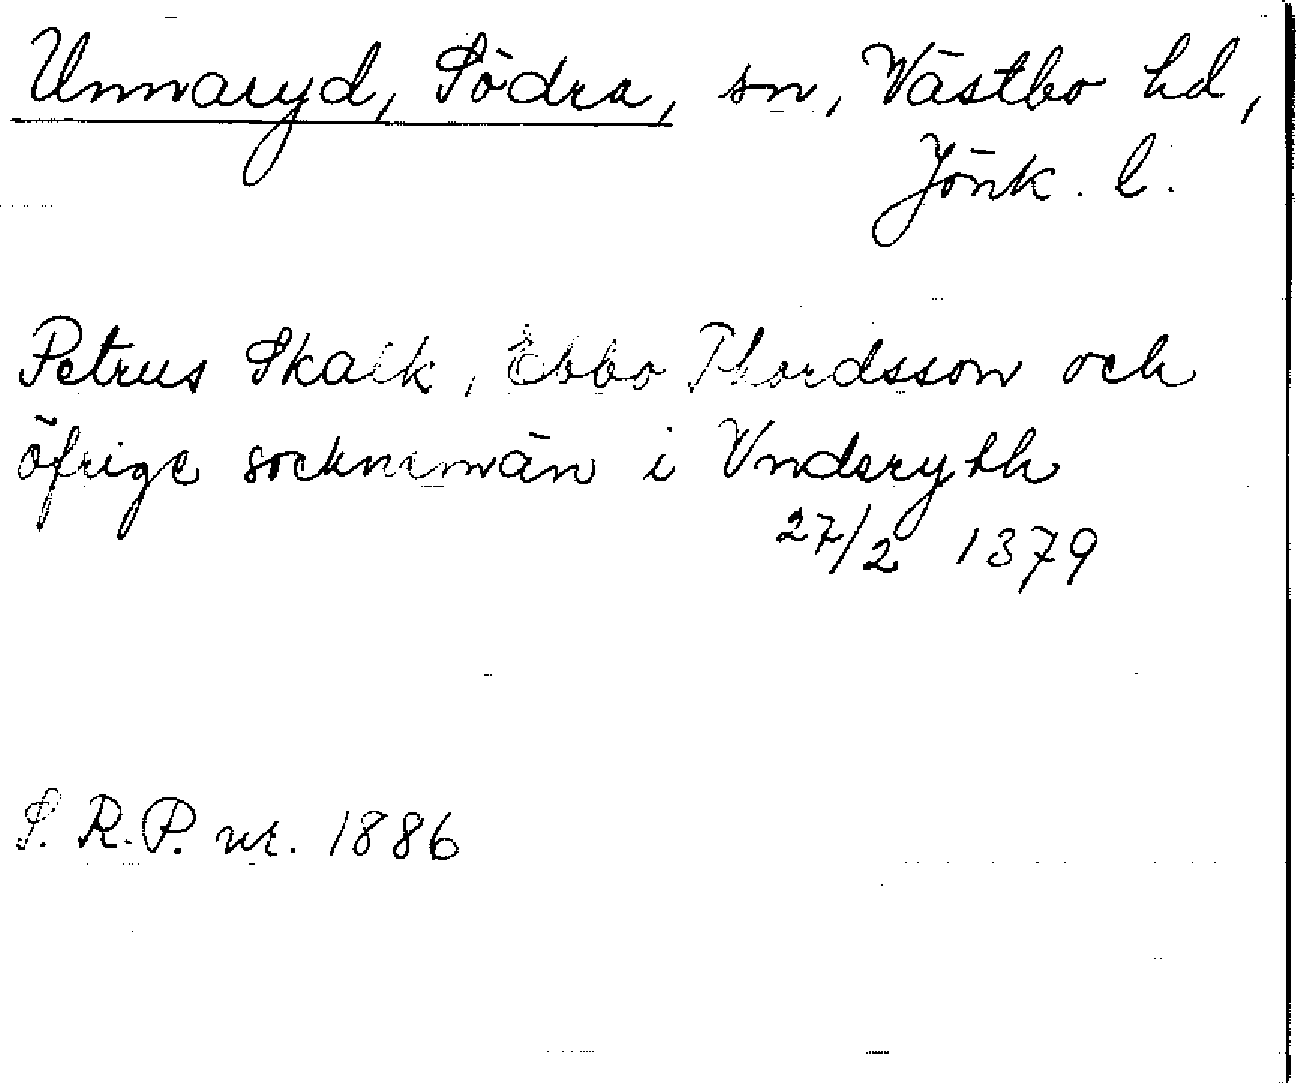 Unnaryd, Södra, sn, Västbo hd,
Jönk. l.
Petrus Skalk, Ebbo Thordsson och
öfrige socknemän i Vnderyth
27/2 1379
S. R. P. nr. 1886